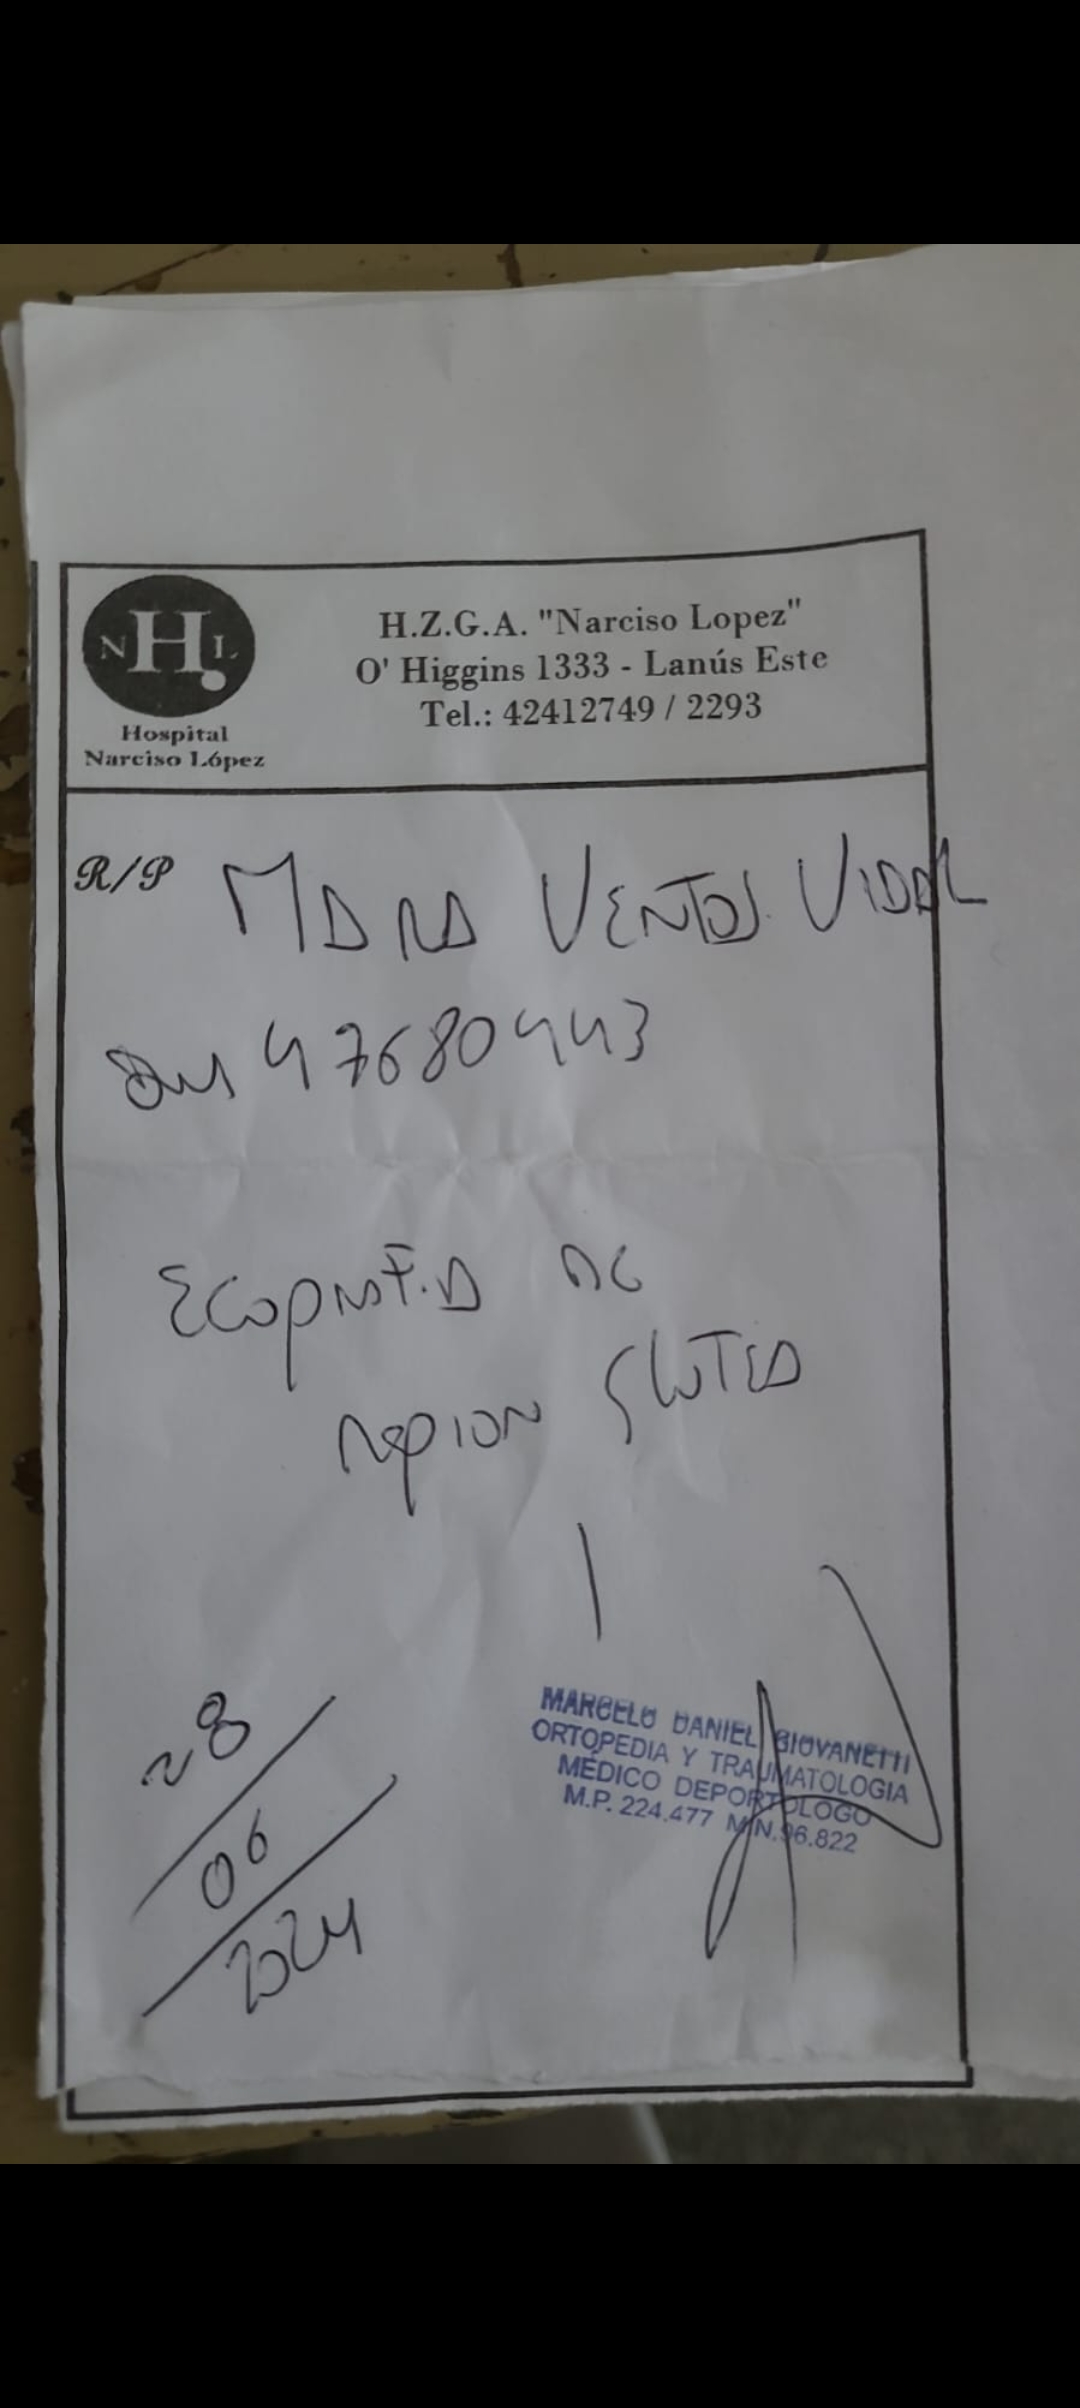 N H L
Hospital
Narciso López
H.Z.G.A. "Narciso Lopez"
O' Higgins 1333 - Lanús Este
Tel.: 42412749 / 2293
R/P MARA VENTOS VIDAL
DNI 47680443
ECOGRAFIA DE
REGION GLUTEA
28
06
2024
MARCELO DANIEL GIOVANETTI
ORTOPEDIA Y TRAUMATOLOGIA
MÉDICO DEPORTOLOGO
M.P. 224.477 M.N. 96.822